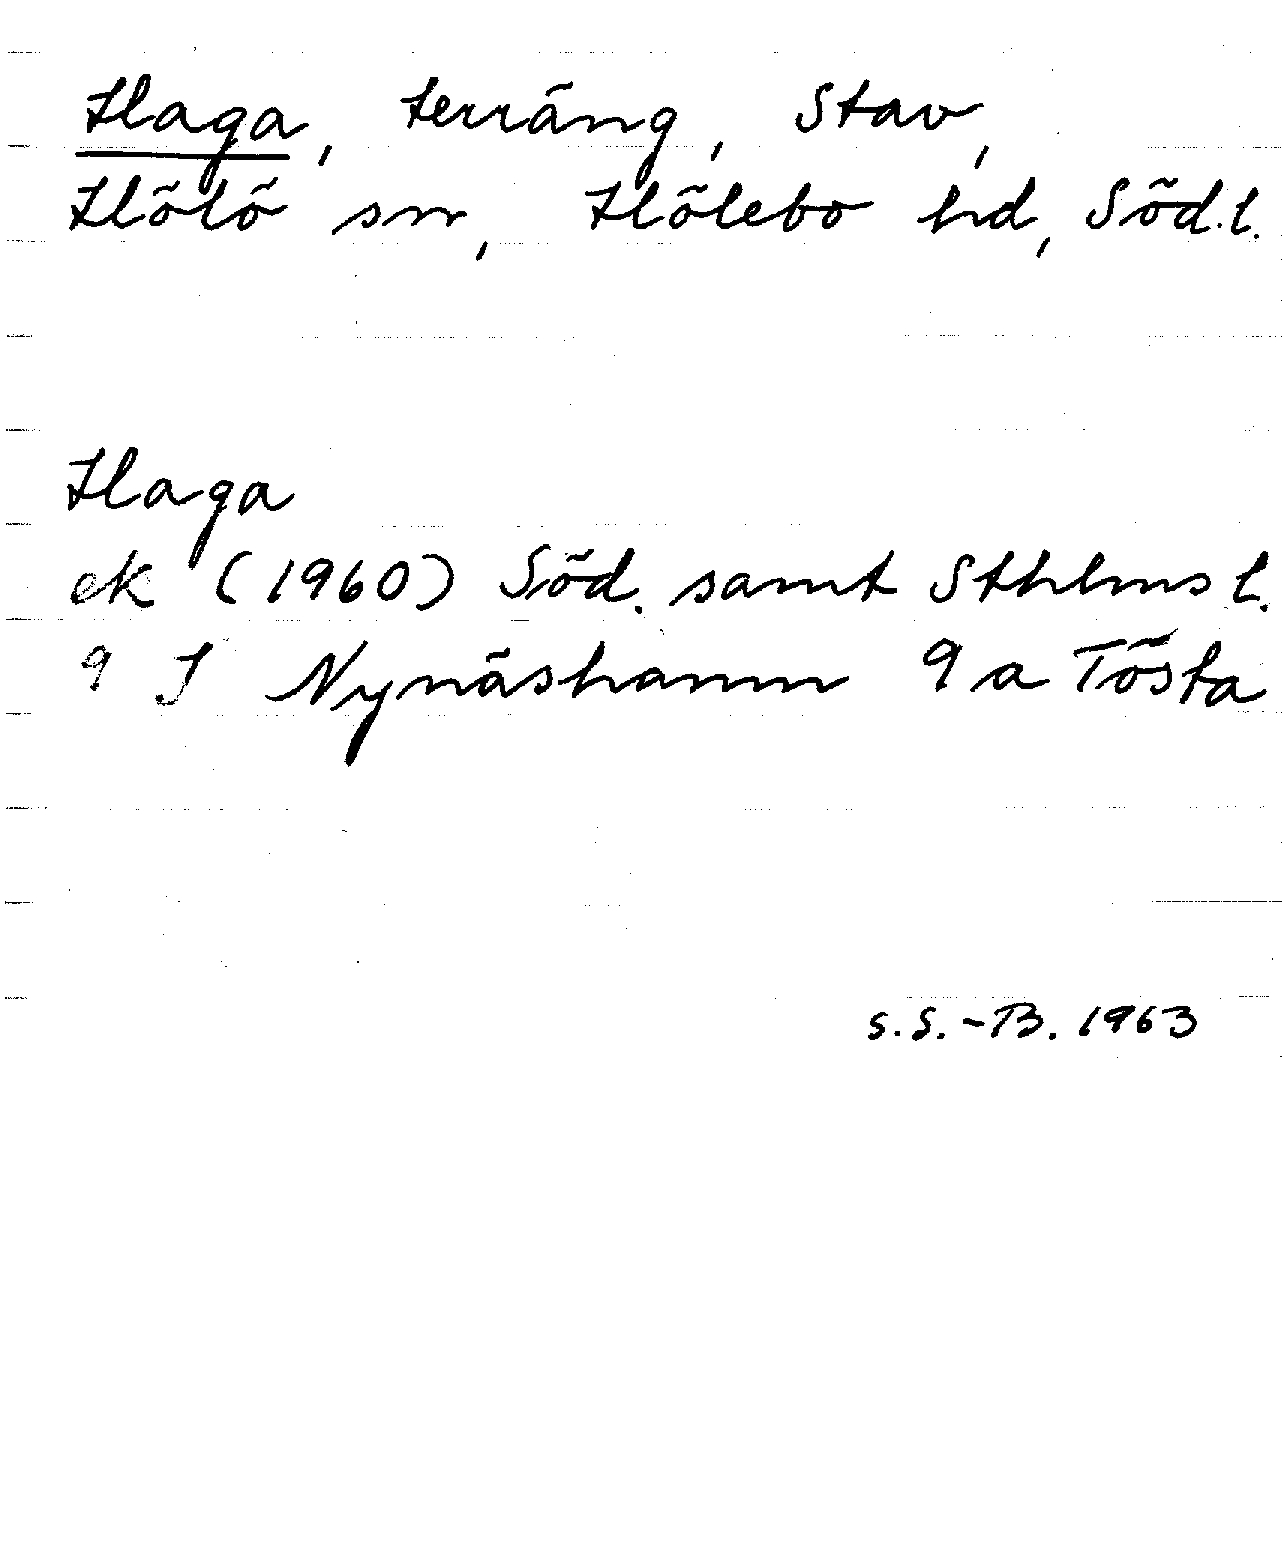 Haga, terräng, Stav,
Hölö sn, Hölebo hd, Söd. l.
Haga
ek (1960) Söd. samt Sthlms l.
9 I Nynäshamn 9 a Tösta
S. S.-B. 1963